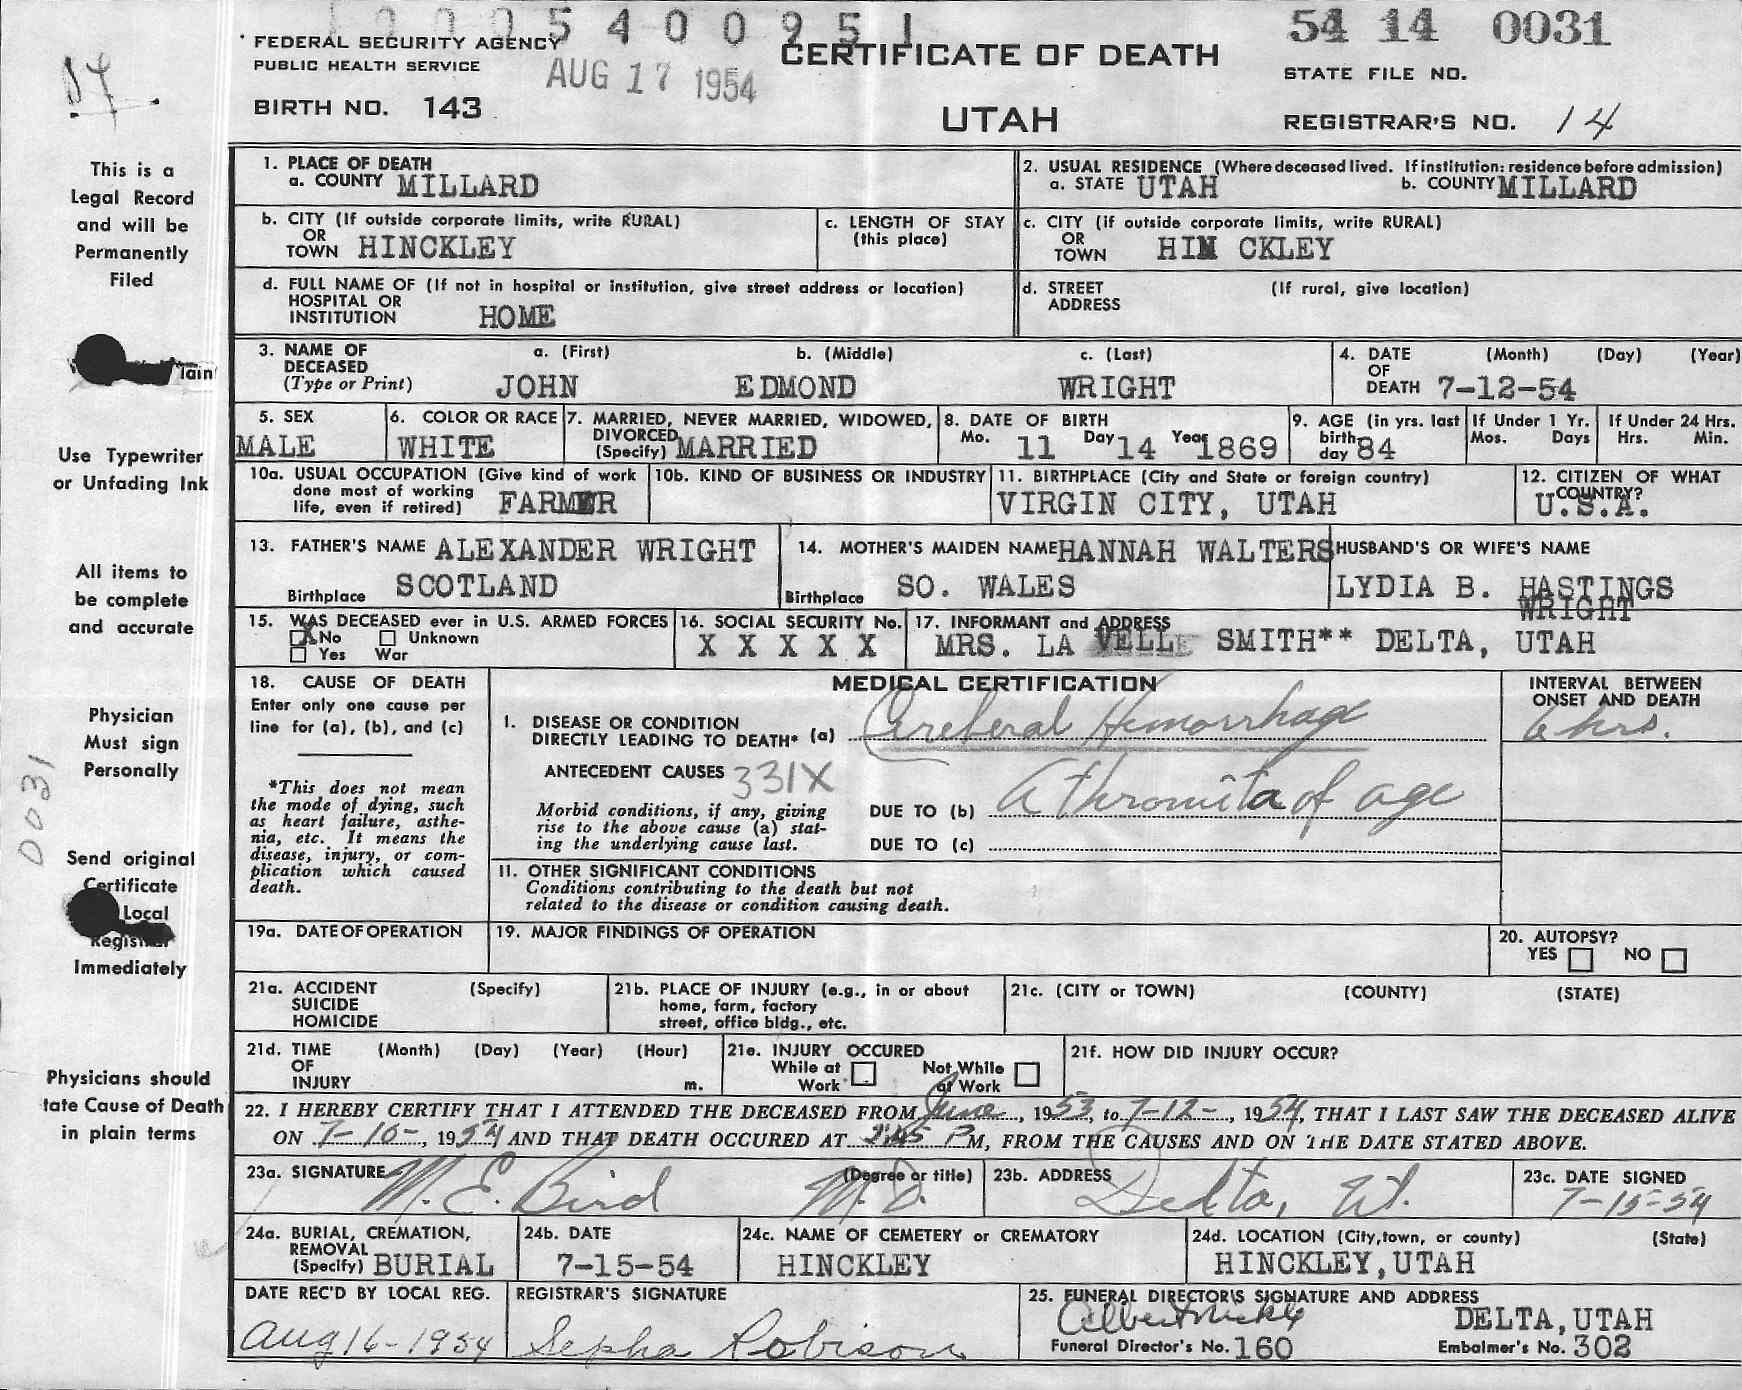 1 0 0 5 4 0 0 9 5 1
54 14 0031
FEDERAL SECURITY AGENCY
PUBLIC HEALTH SERVICE
AUG 17 1954
CERTIFICATE OF DEATH
STATE FILE NO.
BIRTH NO. 143
UTAH
REGISTRAR'S NO. 14
This is a
Legal Record
and will be
Permanently
Filed
lain
Use Typewriter
or Unfading Ink
All items to
be complete
and accurate
Physician
Must sign
Personally
0031
Send original
Certificate
Local
Registrar
Immediately
Physicians should
tate Cause of Death
in plain terms
1. PLACE OF DEATH
a. COUNTY MILLARD
2. USUAL RESIDENCE (Where deceased lived. If institution: residence before admission)
a. STATE UTAH b. COUNTY MILLARD
b. CITY (If outside corporate limits, write RURAL)
OR
TOWN HINCKLEY
c. LENGTH OF STAY
(this place)
c. CITY (if outside corporate limits, write RURAL)
OR
TOWN HIN CKLEY
d. FULL NAME OF (If not in hospital or institution, give street address or location)
HOSPITAL OR
INSTITUTION HOME
d. STREET (If rural, give location)
ADDRESS
3. NAME OF a. (First) b. (Middle) c. (Last)
DECEASED
(Type or Print) JOHN EDMOND WRIGHT
4. DATE (Month) (Day) (Year)
OF
DEATH 7-12-54
5. SEX
MALE
6. COLOR OR RACE
WHITE
7. MARRIED, NEVER MARRIED, WIDOWED,
DIVORCED
(Specify) MARRIED
8. DATE OF BIRTH
Mo. 11 Day 14 Year 1869
9. AGE (in yrs. last
birth-
day 84
If Under 1 Yr.
Mos. Days
If Under 24 Hrs.
Hrs. Min.
10a. USUAL OCCUPATION (Give kind of work
done most of working
life, even if retired) FARMER
10b. KIND OF BUSINESS OR INDUSTRY
11. BIRTHPLACE (City and State or foreign country)
VIRGIN CITY, UTAH
12. CITIZEN OF WHAT
COUNTRY?
U.S.A.
13. FATHER'S NAME ALEXANDER WRIGHT
Birthplace SCOTLAND
14. MOTHER'S MAIDEN NAME HANNAH WALTERS
Birthplace SO. WALES
HUSBAND'S OR WIFE'S NAME
LYDIA B. HASTINGS
WRIGHT
15. WAS DECEASED ever in U.S. ARMED FORCES
X No Unknown
Yes War
16. SOCIAL SECURITY No.
X X X X X
17. INFORMANT and ADDRESS
MRS. LA VELL SMITH** DELTA, UTAH
18. CAUSE OF DEATH
Enter only one cause per
line for (a), (b), and (c)
*This does not mean
the mode of dying, such
as heart failure, asthe-
nia, etc. It means the
disease, injury, or com-
plication which caused
death.
MEDICAL CERTIFICATION
I. DISEASE OR CONDITION
DIRECTLY LEADING TO DEATH* (a) Cereberal Hemorrhage
INTERVAL BETWEEN
ONSET AND DEATH
6 hrs.
ANTECEDENT CAUSES 331X
Morbid conditions, if any, giving
rise to the above cause (a) stat-
ing the underlying cause last.
DUE TO (b) Athromita of age
DUE TO (c)
11. OTHER SIGNIFICANT CONDITIONS
Conditions contributing to the death but not
related to the disease or condition causing death.
19a. DATE OF OPERATION
19. MAJOR FINDINGS OF OPERATION
20. AUTOPSY?
YES NO
21a. ACCIDENT (Specify)
SUICIDE
HOMICIDE
21b. PLACE OF INJURY (e.g., in or about
home, farm, factory
street, office bldg., etc.
21c. (CITY or TOWN) (COUNTY) (STATE)
21d. TIME (Month) (Day) (Year) (Hour)
OF
INJURY m.
21e. INJURY OCCURED
While at Not While
Work at Work
21f. HOW DID INJURY OCCUR?
22. I HEREBY CERTIFY THAT I ATTENDED THE DECEASED FROM June, 1953, to 7-12-, 1954, THAT I LAST SAW THE DECEASED ALIVE
ON 7-10-, 1954 AND THAT DEATH OCCURED AT 2:45 P M, FROM THE CAUSES AND ON THE DATE STATED ABOVE.
23a. SIGNATURE (Degree or title)
M. E. Bird M.D.
23b. ADDRESS
Delta, Ut.
23c. DATE SIGNED
7-15-54
24a. BURIAL, CREMATION,
REMOVAL
(Specify) BURIAL
24b. DATE
7-15-54
24c. NAME OF CEMETERY or CREMATORY
HINCKLEY
24d. LOCATION (City, town, or county) (State)
HINCKLEY, UTAH
DATE REC'D BY LOCAL REG.
Aug 16-1954
REGISTRAR'S SIGNATURE
Sepha Robison
25. FUNERAL DIRECTOR'S SIGNATURE AND ADDRESS
DELTA, UTAH
Funeral Director's No. 160 Embalmer's No. 302